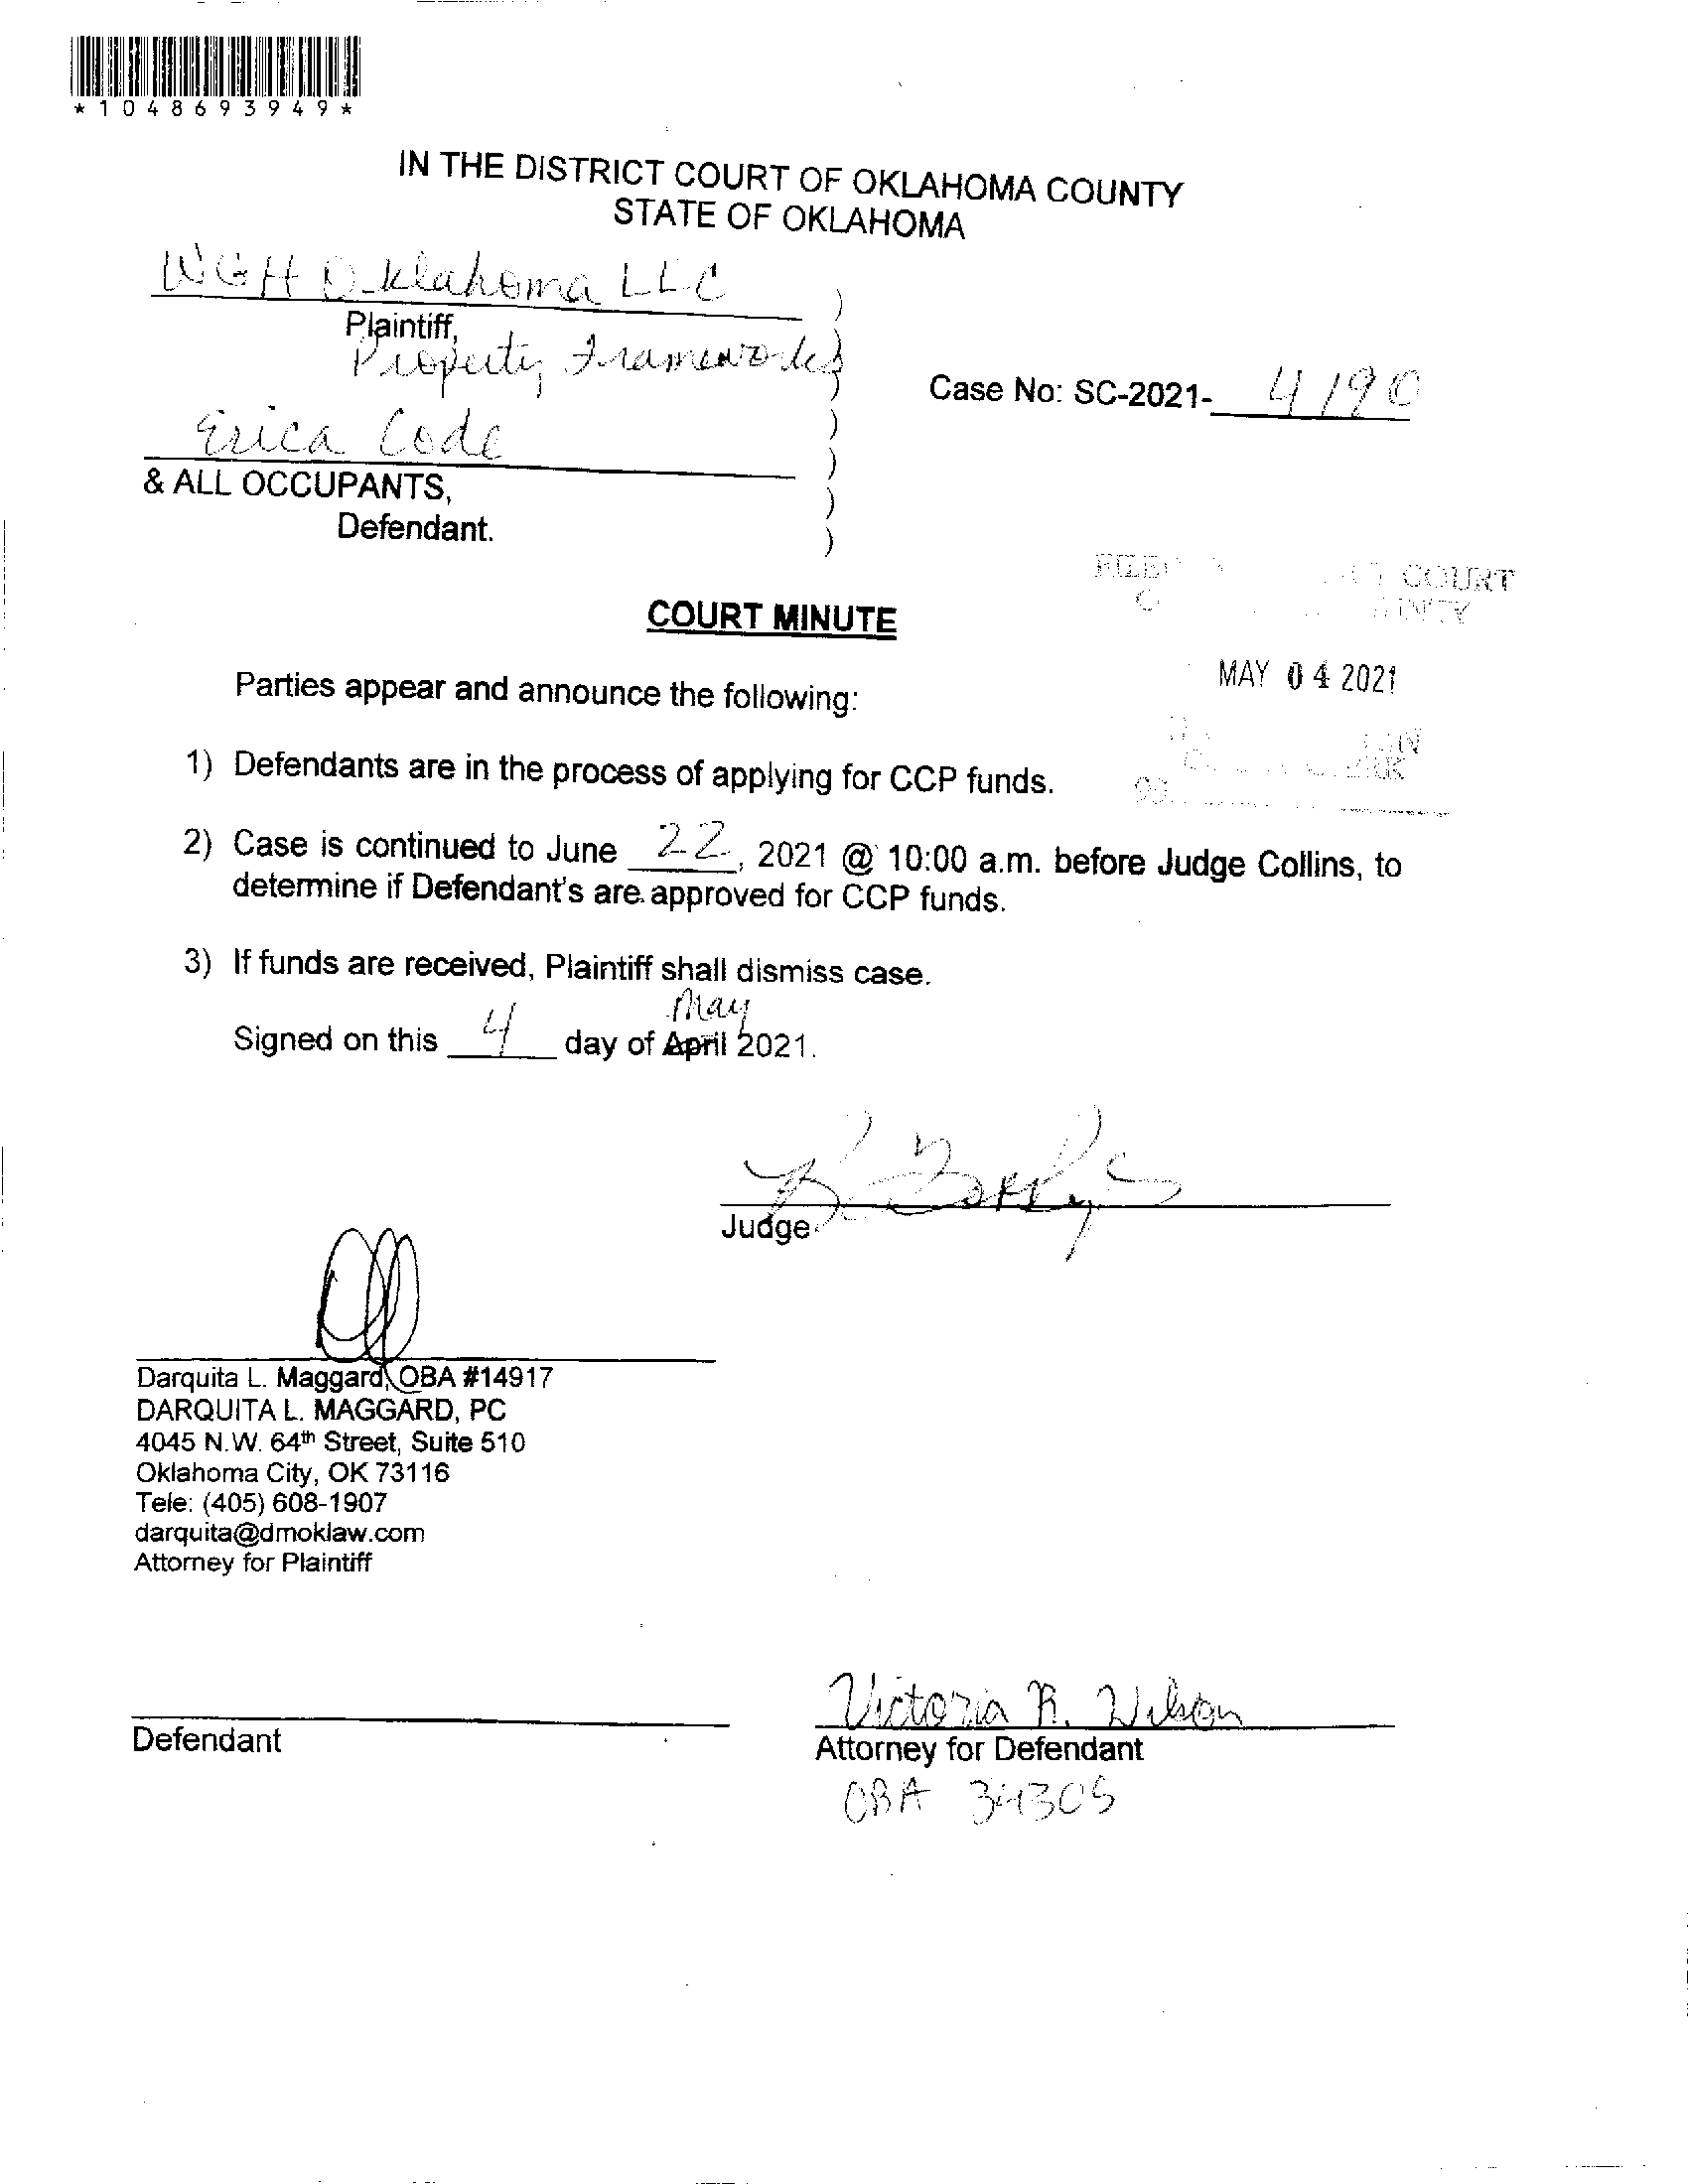 *1048693949*
IN THE DISTRICT COURT OF OKLAHOMA COUNTY
STATE OF OKLAHOMA
WGH Oklahoma LLC )
Plaintiff,
Property Frameworks )
Case No: SC-2021- 4190
)
Erica Code )
)
& ALL OCCUPANTS, )
Defendant. )
FILED COURT
COURT MINUTE
MAY 04 2021
Parties appear and announce the following:
1) Defendants are in the process of applying for CCP funds.
2) Case is continued to June 22, 2021 @ 10:00 a.m. before Judge Collins, to
determine if Defendant's are approved for CCP funds.
3) If funds are received, Plaintiff shall dismiss case.
May
Signed on this 4 day of April 2021.
Judge
Darquita L. Maggard, OBA #14917
DARQUITA L. MAGGARD, PC
4045 N.W. 64th Street, Suite 510
Oklahoma City, OK 73116
Tele: (405) 608-1907
darquita@dmoklaw.com
Attorney for Plaintiff
Victoria R. Wilson
Defendant
Attorney for Defendant
OBA 34305